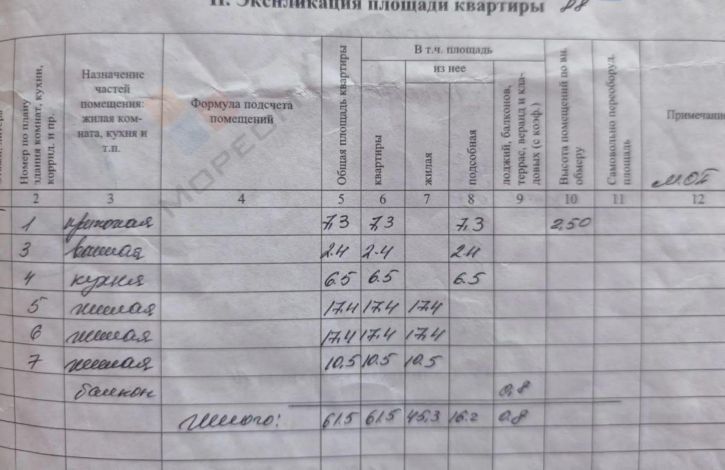 II. Экспликация площади квартиры 88
Номер по плану здания комнат, кухни, коррид. и пр.
Назначение частей помещения: жилая комната, кухня и т.п.
Формула подсчета помещений
Общая площадь квартиры
В т.ч. площадь
из нее
квартиры
жилая
подсобная
лоджий, балконов, террас, веранд и кладовых (с коэф.)
Высота помещений по вн. обмеру
Самовольно переоборуд. площадь
Примечание
2 3 4 5 6 7 8 9 10 11 12
1 прихожая 7,3 7,3 7,3 2,50
3 ванная 2.4 2.4 2.4
4 кухня 6.5 6.5 6.5
5 жилая 17.4 17.4 17.4
6 жилая 17,4 17.4 17,4
7 жилая 10,5 10.5 10.5
балкон 0,8
Итого: 61.5 61.5 45,3 16.2 0.8